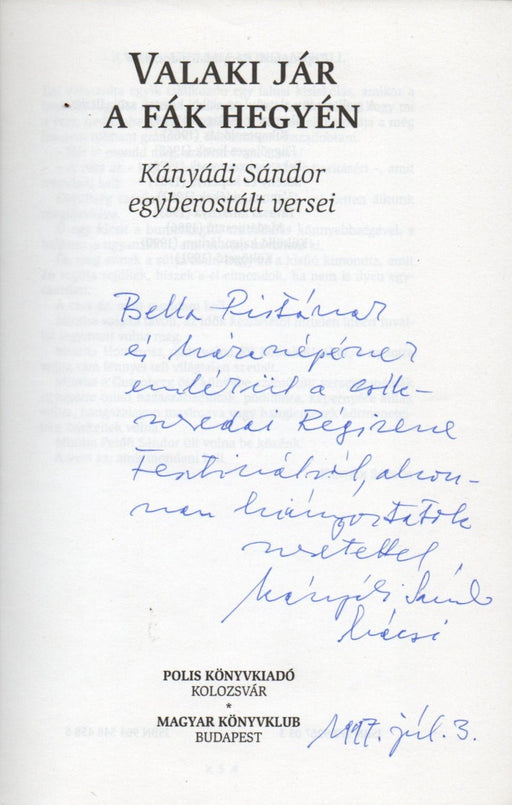 VALAKI JÁR
A FÁK HEGYÉN
Kányádi Sándor
egyberostált versei
Bella Pistának
és háznépének
emlékül a csík-
szeredai Régizene
Fesztiválról, ahon-
nan hiányoztatok
szeretettel
Kányádi Sándor
bácsi
1997. júl. 3.
POLIS KÖNYVKIADÓ
KOLOZSVÁR
*
MAGYAR KÖNYVKLUB
BUDAPEST